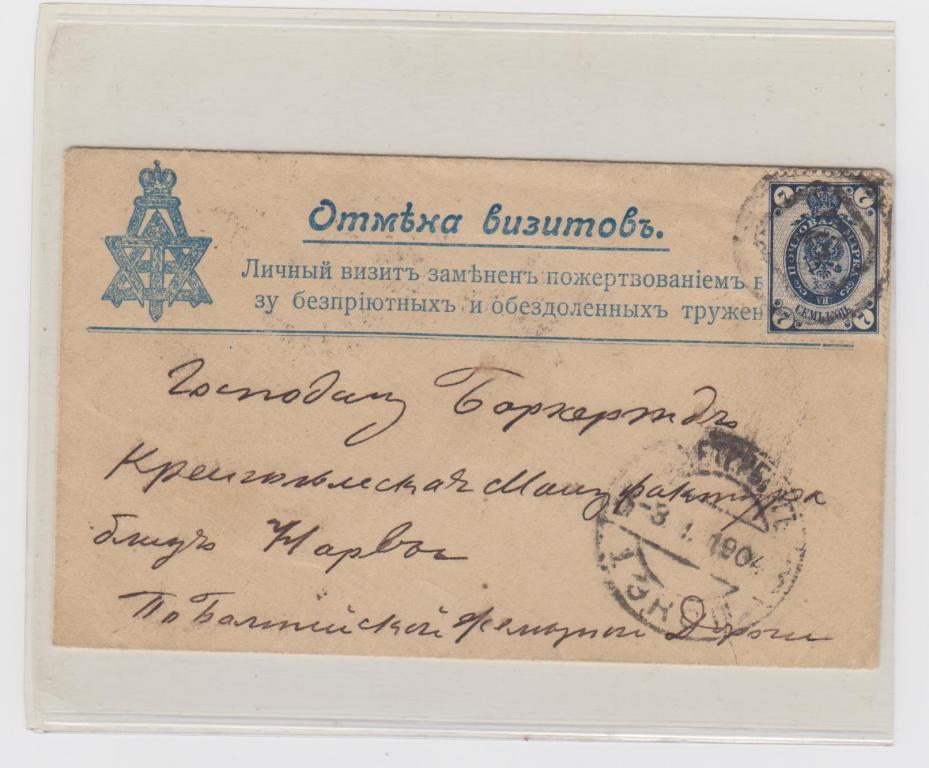 Отмѣна визитовъ.
Личный визитъ замѣненъ пожертвованіемъ в
зу безпріютныхъ и обездоленныхъ тружен
7 7
ПОЧТОВАЯ МАРКА
VII
СЕМЬ КОП.
7 7
Господамъ
Кренгольмская Мануфактура
близъ Нарвы
По Балтийской желѣзной Дороги
3 1 1904
7